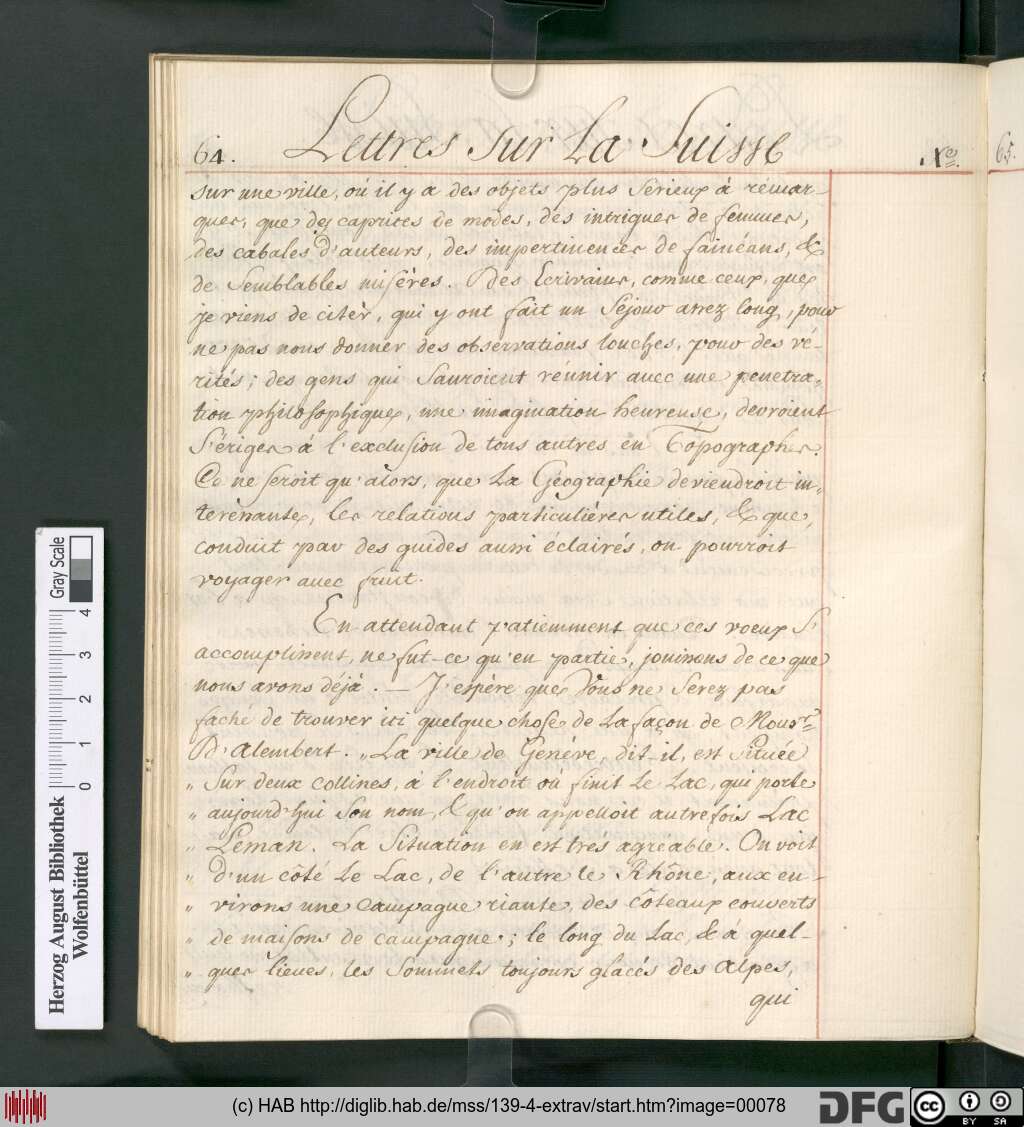 64. Lettres sur La Suisse No.
sur une ville, où il y a des objets plus serieux à rémar-
quer, que des caprices de modes, des intrigues de femmes,
des cabales d'auteurs, des impertinences de fainéans, &
de Semblables misères. Des Ecrivains, comme ceux, que
je viens de citèr, qui y ont fait un Séjour assez long, pour
ne pas nous donner des observations louches, pour des vé-
rités; des gens qui Sauroient réunir avec une penetra-
tion philosophique, une imagination heureuse, devroient
S'ériger à l'exclusion de tous autres en Topographes.
Ce ne seroit qu'alors, que La Géographie deviendroit in-
teressante, les relations particulières utiles, & que,
conduit par des guides aussi éclairés, on pourroit
voyager avec fruit.
En attendant patiemment que ces voeux S'
accomplissent, ne fut-ce qu'en partie, jouissons de ce que
nous avons déjà. — J'espère que Vous ne Serez pas
faché de trouver ici quelque chose de La façon de Monsr.
D'Alembert. „La ville de Genéve, dit-il, est Située
„ Sur deux collines, à l'endroit où finit Le Lac, qui porte
„ aujourd'hui Son nom, & qu'on appelloit autrefois Lac
„ Leman. La Situation en est trés agréable. On voit
„ d'un côté Le Lac, de l'autre le Rhône, aux en-
„ virons une campagne riante, des côteaux couverts
„ de maisons de campagne; le long du Lac, & à quel-
„ ques lieues, les Sommets toujours glacés des Alpes,
qui
65.
Gray Scale
0 1 2 3 4
Herzog August Bibliothek
Wolfenbüttel
(c) HAB http://diglib.hab.de/mss/139-4-extrav/start.htm?image=00078
DFG
cc BY SA